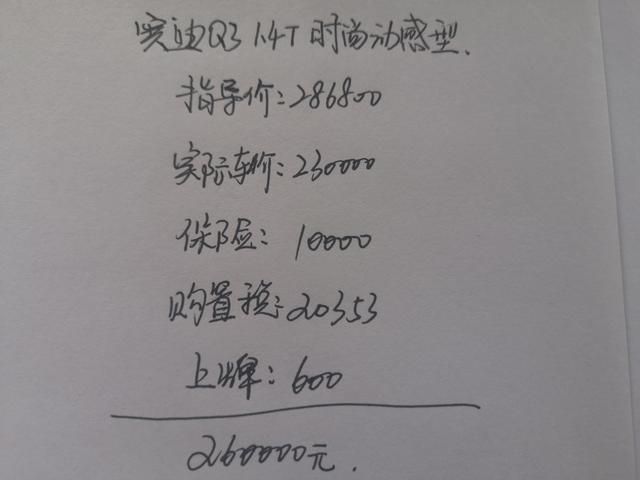 奥迪Q3 1.4T 时尚动感型.
指导价:286800
实际车价:230000
保险: 10000
购置税:20353
上牌:600
260000元.